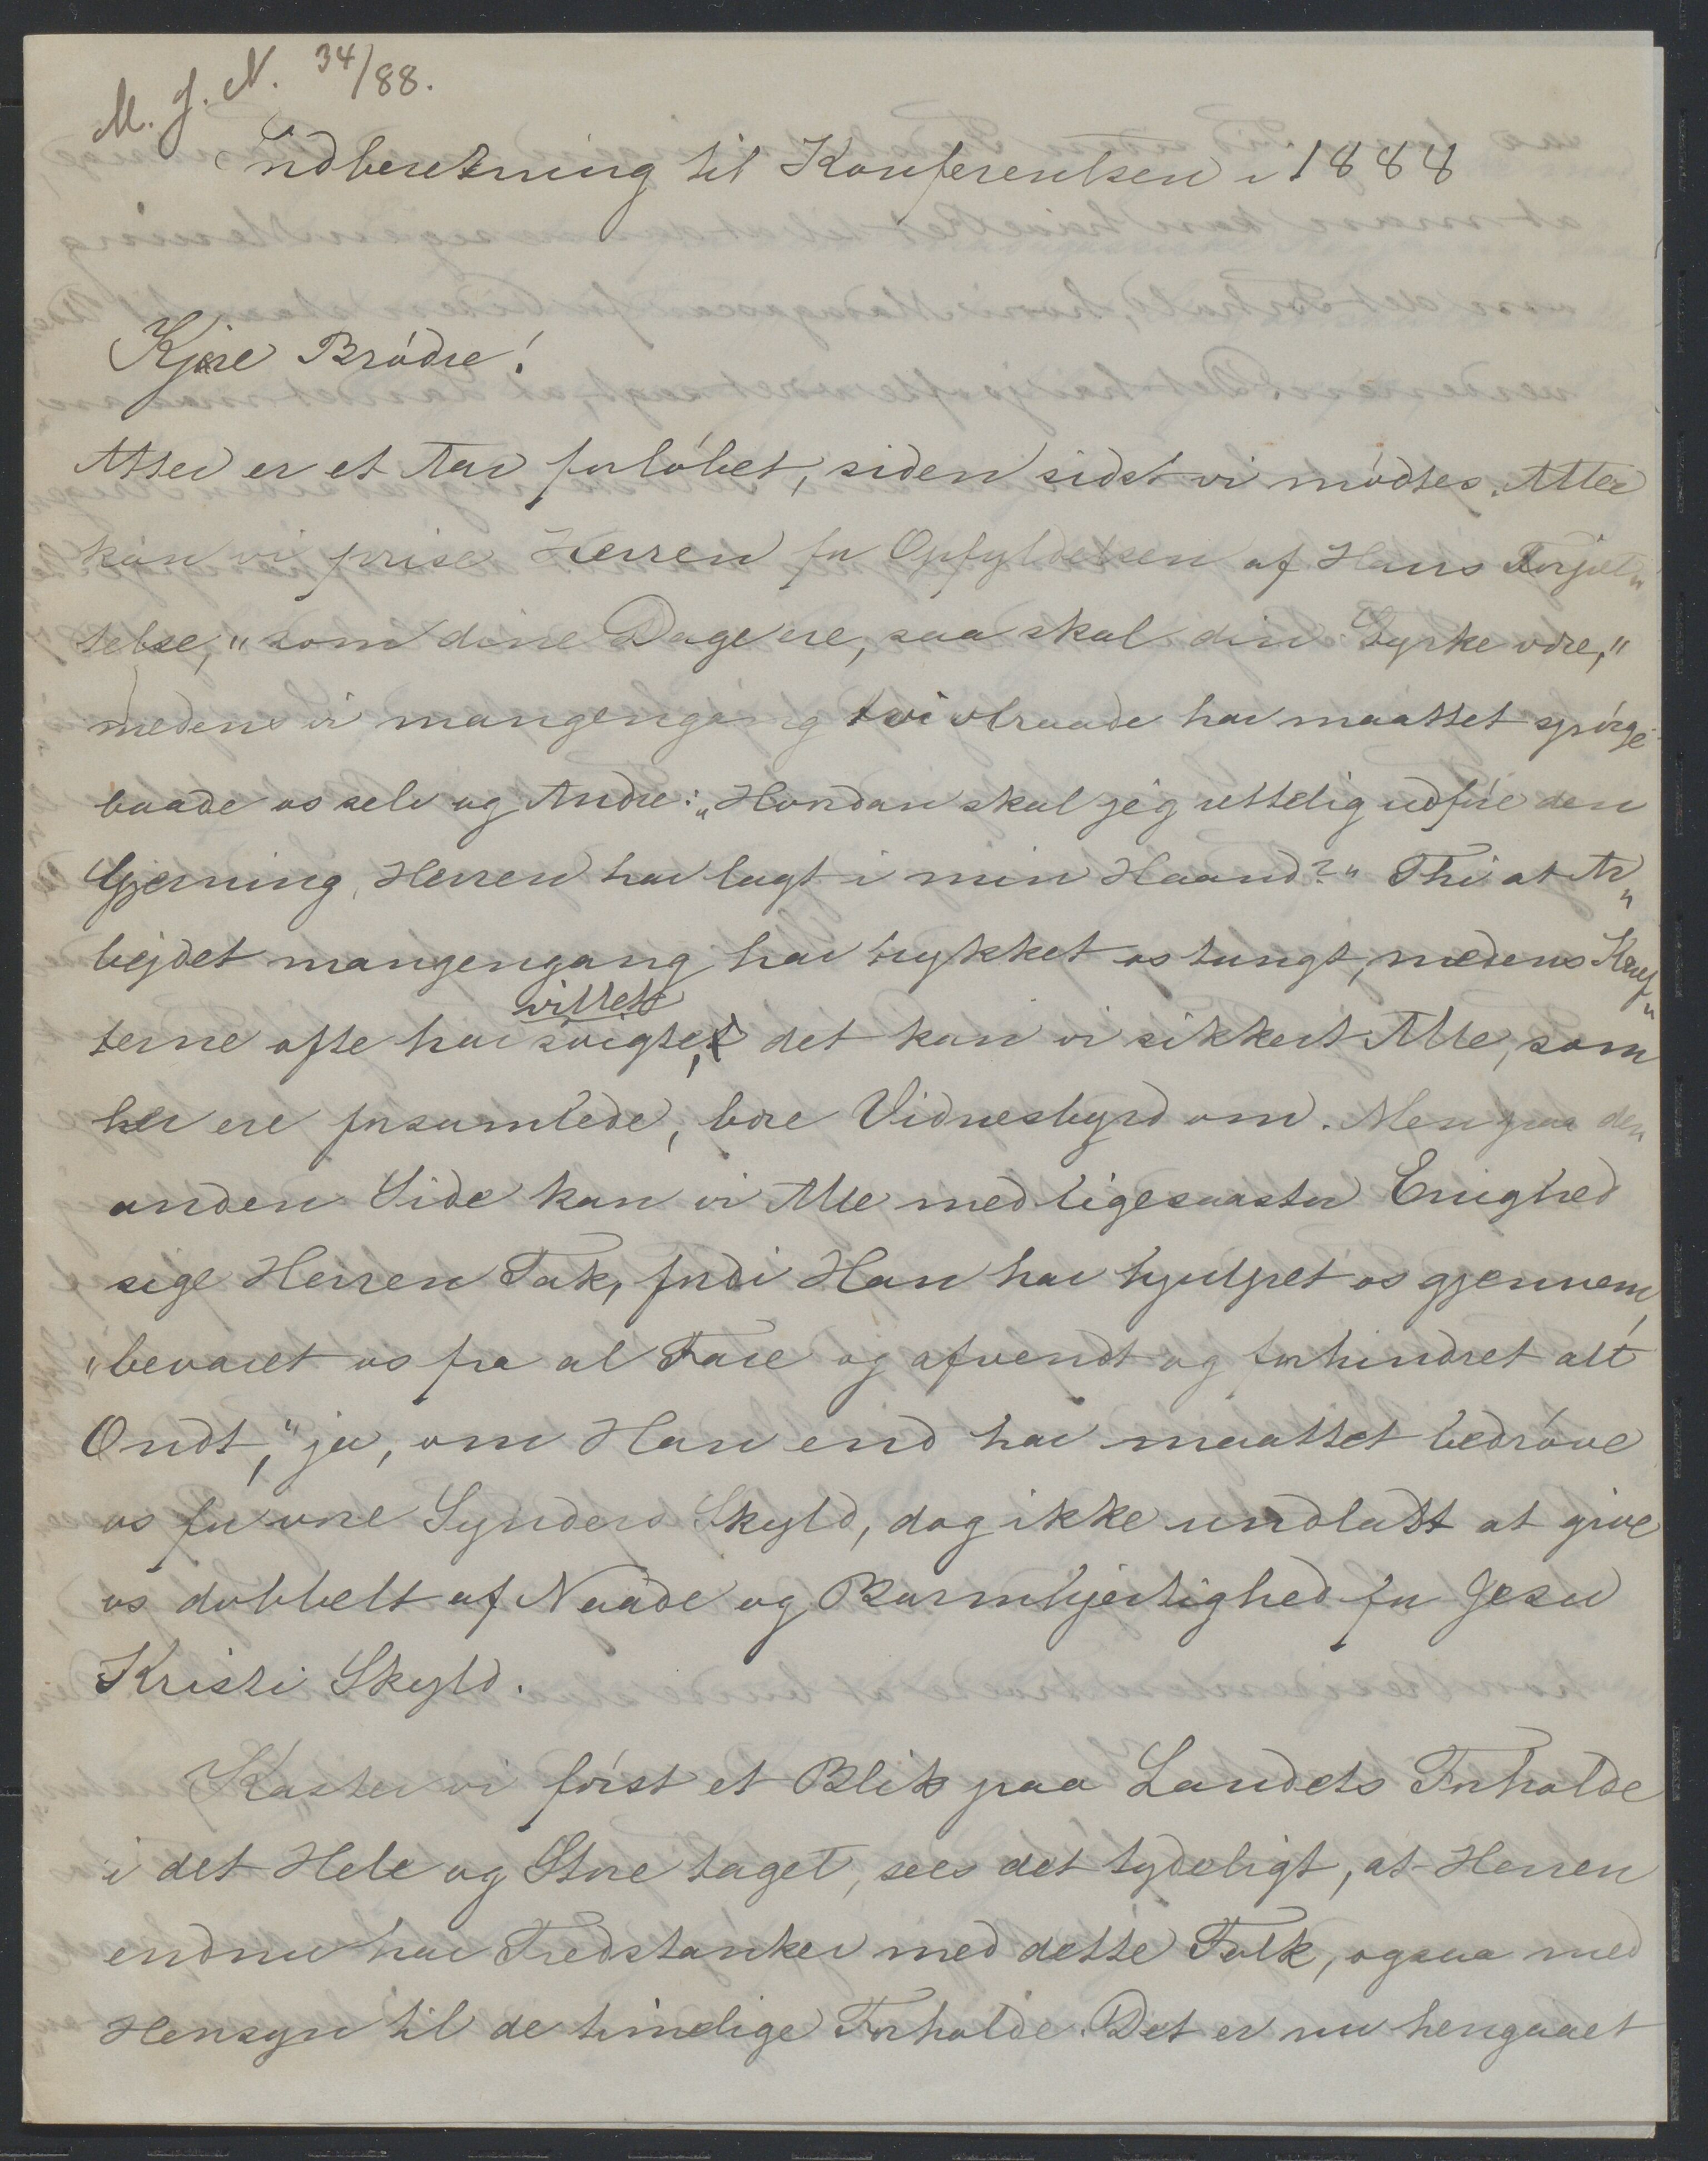 M. J. N. 34/88.
Indberetning til Konferentsen i 1888
Kjære Brödre!
Atter er et Aar forlöbet, siden sidst vi mödtes. Atter
kan vi prise Herren for Opfyldelsen af Hans Forjæt„
telse, "som dine Dage ere, saa skal din Styrke være,"
medens vi mangengang tvivlraade har maattet spörge
baade os selv og Andre: „Hvordan skal jeg rettelig udföre den
Gjerning, Herren har lagt i min Haand?" Thi at Ar„
bejdet mangengang har trykket os tungt, medens Kræf„
villet
terne ofte har svigte, det kan vi sikkert Alle, som
her ere forsamlede, bære Vidnesbyrd om. Men paa den
anden Side kan vi Alle med ligesaastor Enighed
sige Herren Tak, fordi Han har hjulpet os gjennem,
"bevaret os fra al Fare og afvendt og forhindret alt
Ondt," ja, om Han end har maattet bedröve
os for vore Synders Skyld, dog ikke undladt at give
os dobbelt af Naade og Barmhjertighed for Jesu
Kristi Skyld.
Kaster vi först et Blik paa Landets Forholde
i det Hele og Store taget, sees det tydeligt, at Herren
endnu har Fredstanker med dette Folk, ogsaa med
Hensyn til de timelige Forholde. Det er nu hengaaet